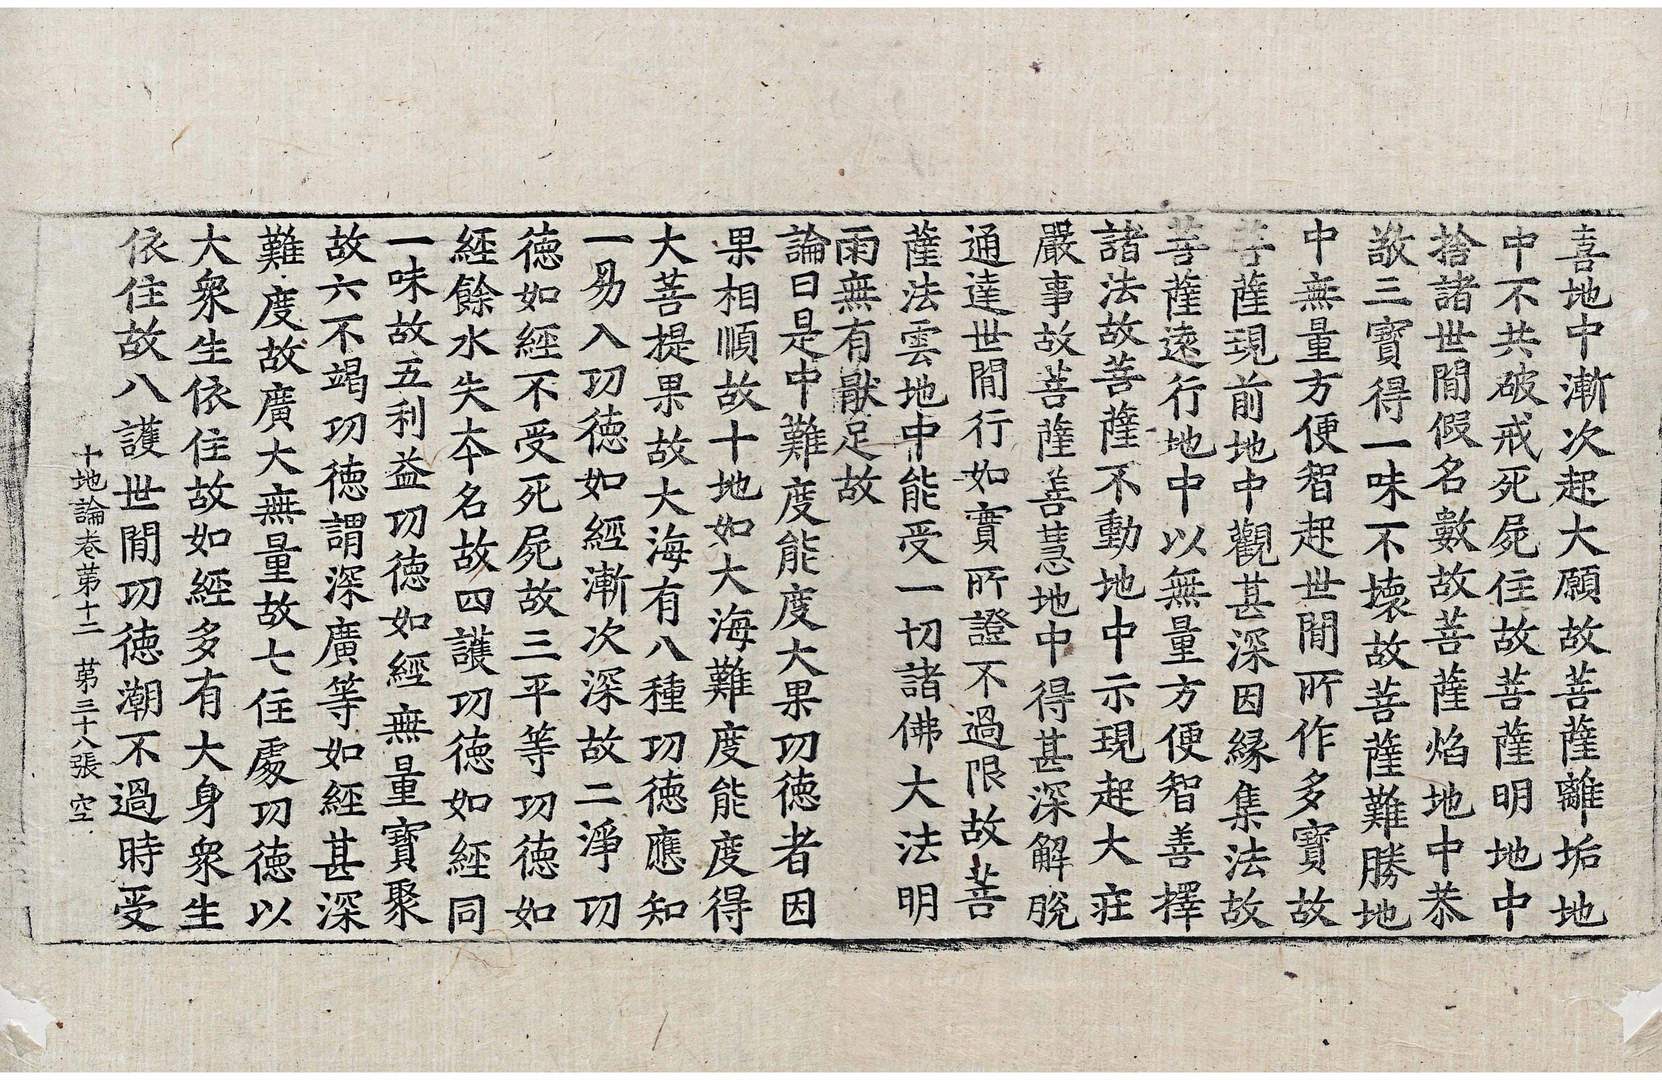 喜地中漸次起大願故菩薩離垢地
中不共破戒死屍住故菩薩明地中
捨諸世間假名數故菩薩焰地中恭
敬三寶得一味不壞故菩薩難勝地
中無量方便智起世間所作多寶故
菩薩現前地中觀甚深因緣集法故
菩薩遠行地中以無量方便智善擇
諸法故菩薩不動地中示現起大莊
嚴事故菩薩善慧地中得甚深解脫
通達世間行如實所證不過限故菩
薩法雲地中能受一切諸佛大法明
雨無有猒足故
論曰是中難度能度大果功德者因
果相順故十地如大海難度能度得
大菩提果故大海有八種功德應知
一易入功德如經漸次深故二淨功
德如經不受死屍故三平等功德如
經餘水失本名故四護功德如經同
一味故五利益功德如經無量寶聚
故六不竭功德謂深廣等如經甚深
難度故廣大無量故七住處功德以
大衆生依住故如經多有大身衆生
依住故八護世間功德潮不過時受
十地論卷苐十二　苐三十八張　空